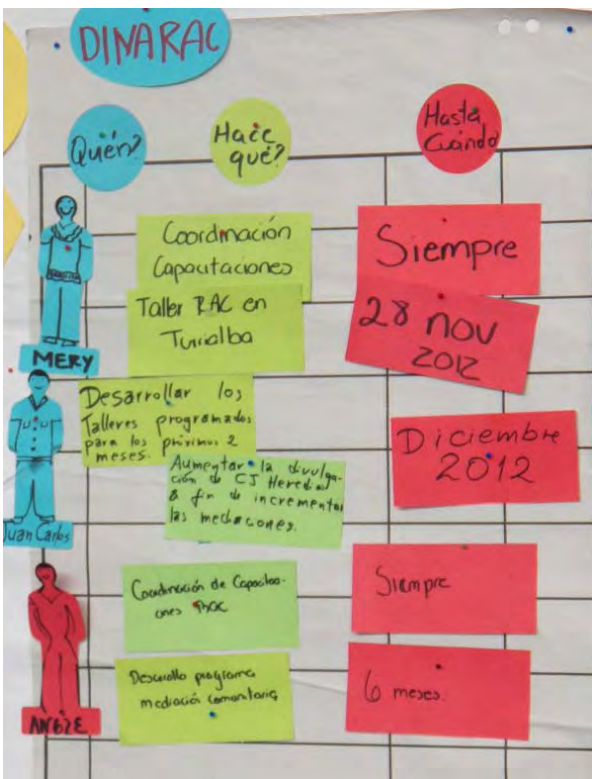 DINARAC
Quién?
Hace
qué?
Hasta
Cuándo
Coordinación
Capacitaciones
Siempre
Taller RAC en
Turrialba
28 nov
2012
MERY
Desarrollar los
Talleres programados
para los próximos 2
meses.
Aumentar la divulga-
ción de CJ Heredia
a fin de incrementar
las mediaciones.
Diciembre
2012
Juan Carlos
Coordinación de Capacitaci-
ones RAC
Siempre
Desarrollo programa
mediación comunitaria
6 meses.
ANGIE